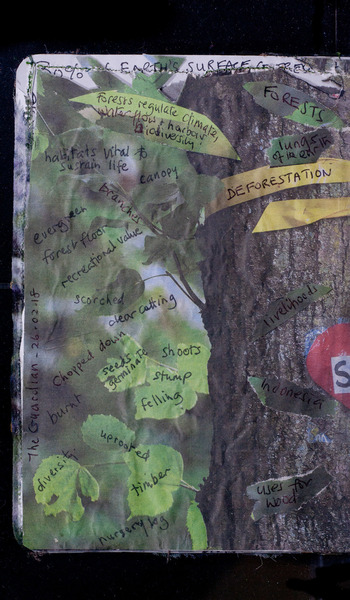 70% of EARTH'S SURFACE COVERED
Forests regulate climate,
water flow & harbor
biodiversity!
FORESTS
lungs of
habitats vital to
sustain life
canopy
DEFORESTATION
branches
evergreen
forest floor
recreational value
scorched
clear catting
livelihoods
Chopped down
seeds
germinate
shoots
stump
felling
S
burnt
Indonesia
uprooted
diversity
timber
uses for
wood
nursery log
The Guardian - 26.02.18